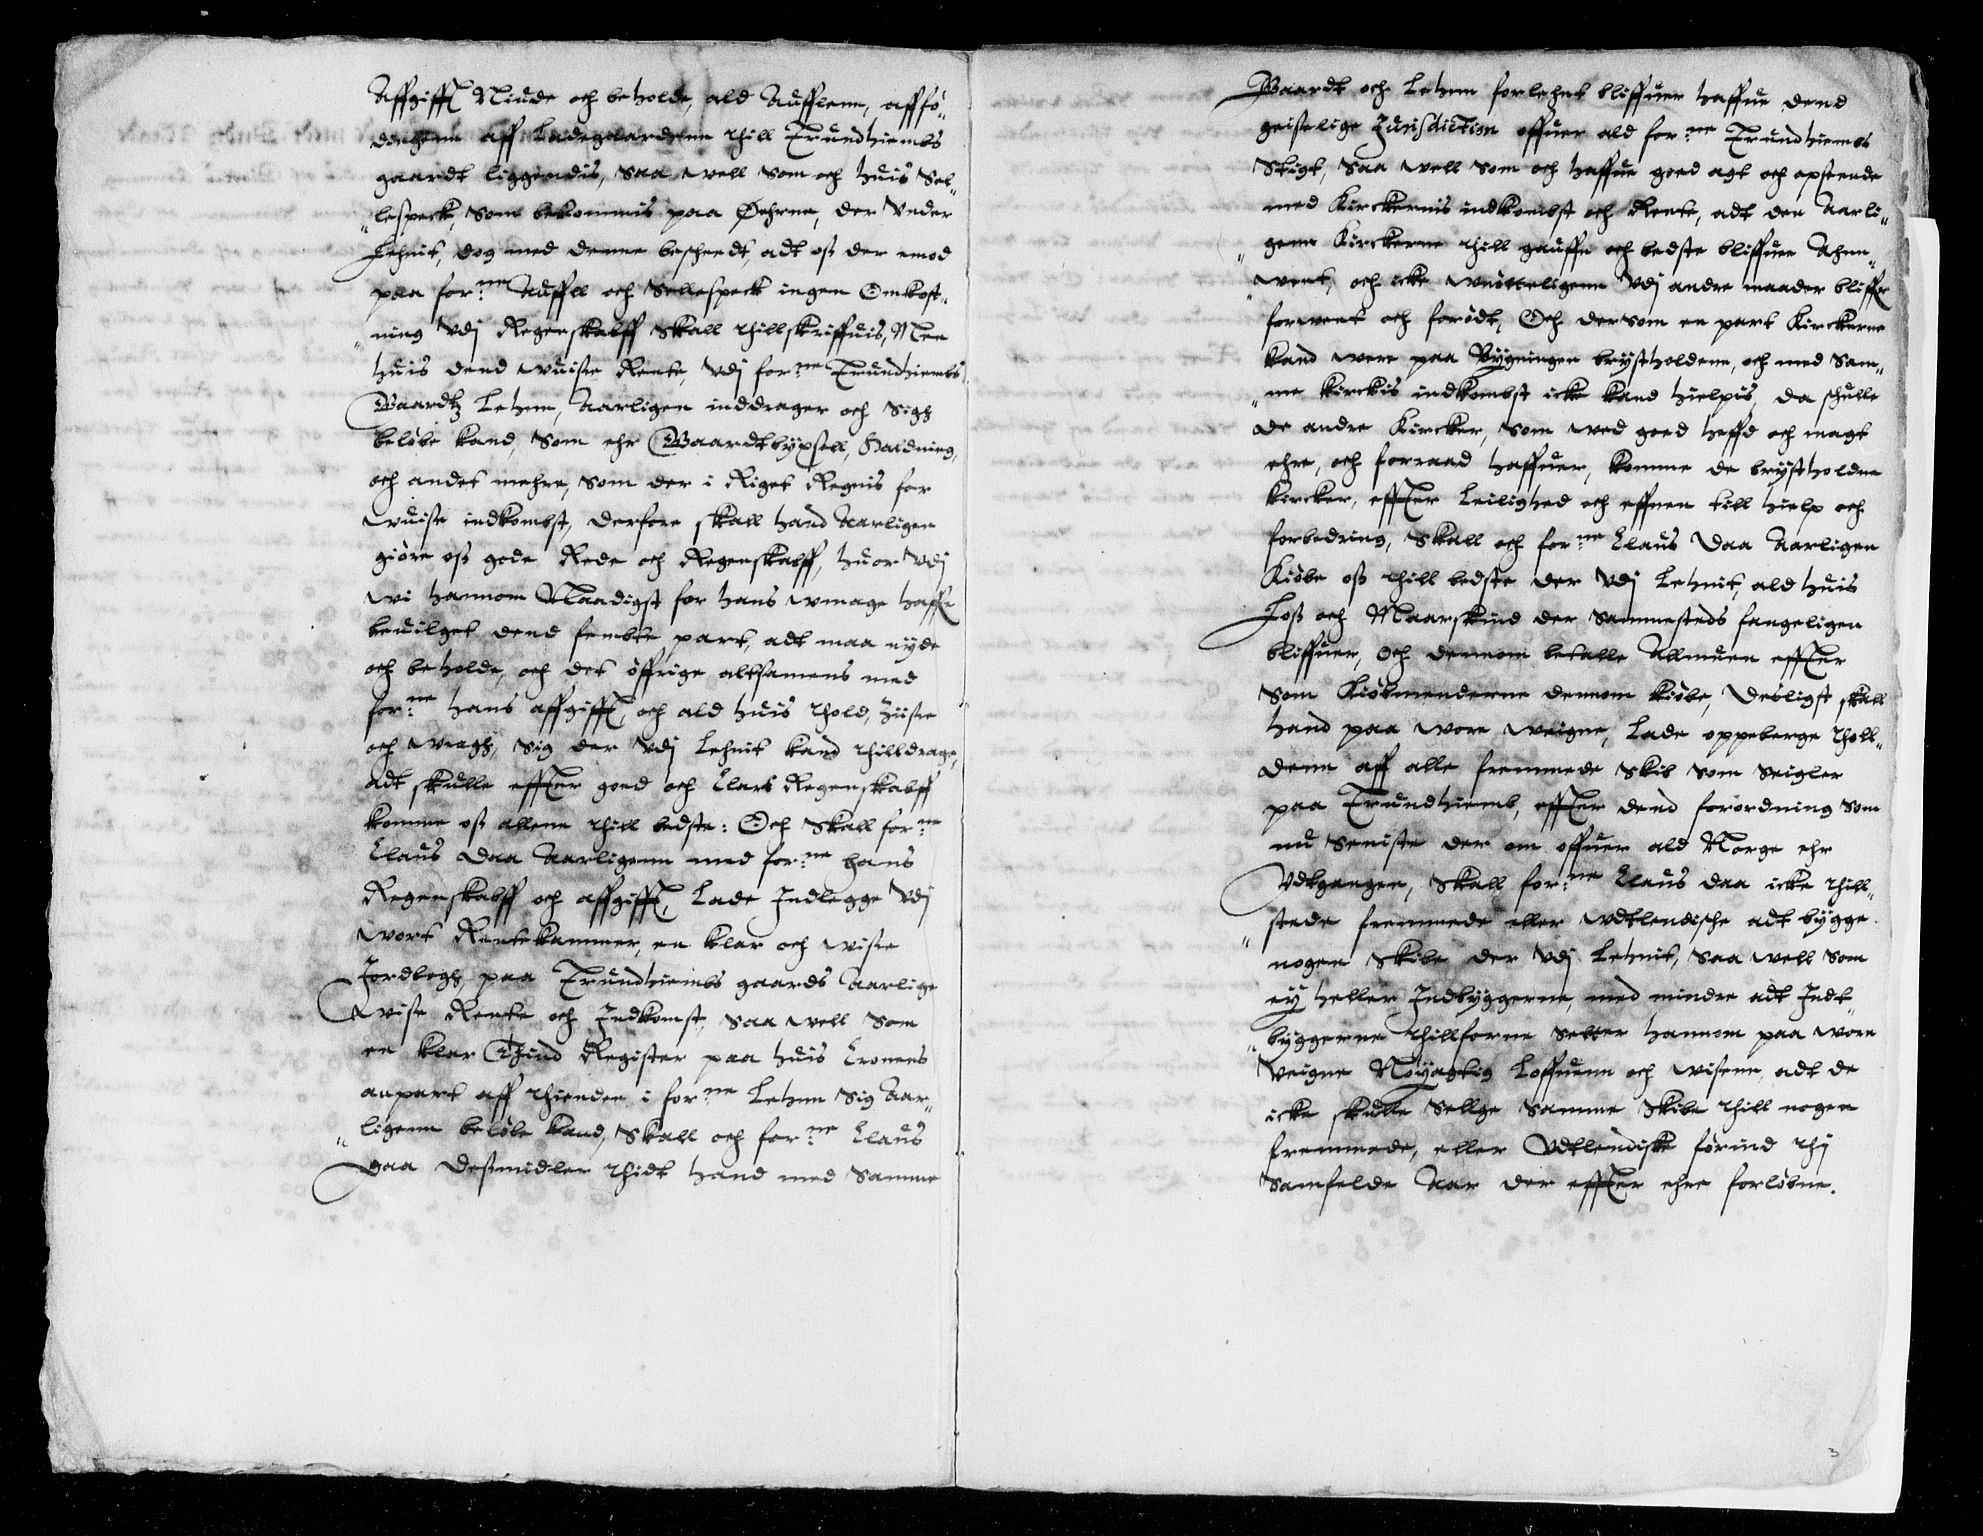 Affgifft Niude och beholde, ald Aufflenn, affø-
dingenn aff Ladegaardene thill Trundhiembs
gaardt liggendis, saa well som och huis Sel-
lespeck, som bekommis paa Øehrne, der Vnder
Lehnit, dog med denne bescheedt, adt oß der emod
paa for:ne Auffll och Sellespeck ingen Omkost-
ning Vdj Regenskabff skall thillskriffuis, Men
huis dend wuiße Rente, Vdj for:ne Trundhiembs
Gaardtz Lehnn, Aarligen inddrager och sigh
beløbe kand, som ehr Gaardtbygsell, Holdning,
och andet mehre, som der i Riget Regnis for
wuiße indkombst, derfore skall hand Aarligen
giøre oß gode Rede och Regenskabff, huor Vdj
wi hannom Naadigst for hans wmage haffe
beuilget dend fembte part, adt maa nyde
och beholde, och det øffrige altsamens med
for:ne hans affgifft, och ald huis thold, Ziise
och wragh, sig der Vdj Lehnit kand thilldrage,
adt skulle effter goed och Clart Regenskabff
komme oß allene thill bedste: Och skall for:ne
Claus Daa Aarligenn med for:ne hans
Regenskabff och affgifft, Lade Indlegge Vdj
wort Rentekammer, en klar och wiße
Jordbogh, paa Trundhiembs gaards Aarlige
wiße Rente och Indkomst, saa well som
en klar Thind Register paa huis Cronens
anpart aff thienden i for:ne Lehnn sig Aar-
ligenn beløbe kand, Skall och for:ne Claus
Daa Deßmidler thidt hand med samme
Gaardt och Lehnn forlehnt bliffuer haffue dend
geistelige Jurisdiction offuer ald for:ne Trundhiembs
Stigt, saa well som och haffue goed agt och opseende
med Kirckernis indkombst och Rente, adt den Aarli-
genn Kirckerne thill gauffn och bedste bliffuer Ahnn-
went, och icke wnøtteligenn Vdj andre maader bliffr
forwent och forødt, Och dersom en part Kirckerne
kand were paa Bygningen brystholdene, och med sam-
me kirckis indkombst icke kand hielpis, da schulle
de andre Kircker, som wed goed heffd och magt
ehre, och forraad haffuer, komme de brystholdne
kircker, effter Leilighed och effnen till hielp och
forbedring, Skall och for:ne Claus Daa Aarligen
Kiøbe oß thill bedste der Vdj Lehnit, ald huis
Loß och Maarskind der sammesteds fangeligen
bliffuer, och dennom betalle Allmuen effter
som Kiøbmenderne dennom kiøbe, Desligst skall
hand paa wore weigne, Lade oppeberge tholl-
denn aff alle fremmede skib som seigler
paa Trundhiemb, effter dend forordning som
nu seniste der om offuer ald Norge ehr
Vdtgangen, Skall for:ne Claus Daa icke thill-
stede fremmede eller wdtlendische adt bygge
nogen skibe der Vdj Lehnit, saa well som
ey heller Indbyggerne, med mindre adt Indt-
byggerne thillforne setter hannom paa wore
weigne Nøyagtig Loffuenn och wissenn, adt de
icke skulle sellge samme skibe thill nogen
fremmede, eller Vdtlendiske førind thj
samfelde Aar der effter ehre forløbne.
3